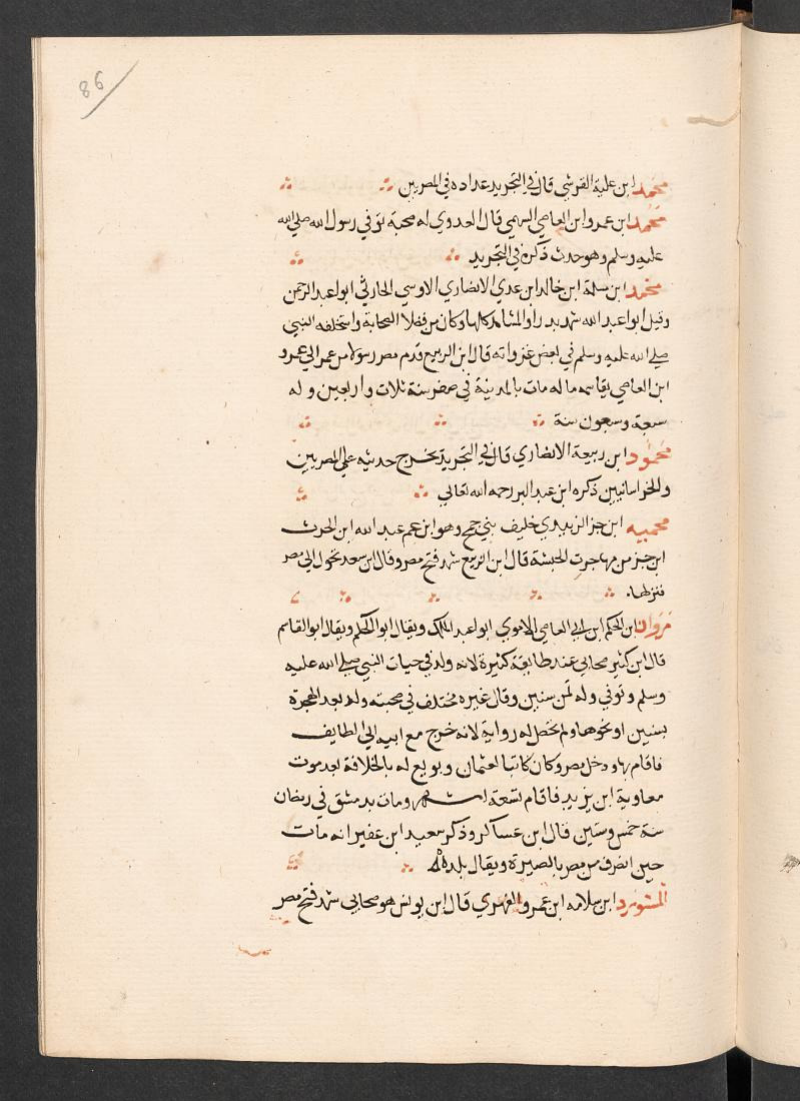 86
محمد ابن علبة القرشي قال في التجريد عداده في المصريين
محمد ابن عمرو ابن العاصي السهمي قال العدوي له صحبة توفي رسول الله صلي الله
عليه وسلم وهو حدث ذكره في التجريد
محمد ابن سلمة ابن خالد ابن عدي الانصاري الاوسي الحارثي ابو عبد الرحمن
وقيل ابو عبد الله شهد بدرا والمشاهد كلها وكان من فضلا الصحابة واستخلفه النبي
صلي الله عليه وسلم في بعض غزواته قال ابن الربيع قدم مصر رسولا من عمر الي عمرو
ابن العاصي يقاسمه ماله مات بالمدينة في صفر سنة ثلاث واربعين وله
سبعة وسبعون سنة
محمود ابن ربيعة الانصاري قال في التجريد يخرج حديثه علي المصريين
والخراسانيين ذكره ابن عبد البر رحمه الله تعالي
محميه ابن جز الزبيدي خليف بني جمح وهو ابن عم عبد الله ابن الحرث
ابن جز من مهاجرت الحبشة قال ابن الربيع شهد فتح مصر وقال ابن سعد تحول الي مصر
فنزلها.
مروان ابن الحكم ابن ابي العاصي الاموي ابو عبد الملك ويقال ابو الحكم ويقال ابو القاسم
قال ابن كثير صحابي عند طايفة كثيرة لانه ولد في حيات النبي صلي الله عليه
وسلم وتوفي وله ثمن سنين وقال غيره مختلف في صحبته ولد بعد الهجرة
بسنين او نحوها ولم تحصل له رواية لانه خرج مع ابيه الي الطايف
فاقام بها ودخل مصر وكان كاتبا لعثمان وبويع له بالخلافة بعد موت
معاوية ابن يزيد فاقام تسعة اشهر ومات بدمشق في رمضان
سنة خمس وستين قال ابن عساكر وذكر سعيد ابن عفير انه مات
حين انصرف من مصر بالصبرة ويقال بلد
المستورد ابن سلامه ابن عمرو الفهري قال ابن يونس هو صحابي شهد فتح مصر